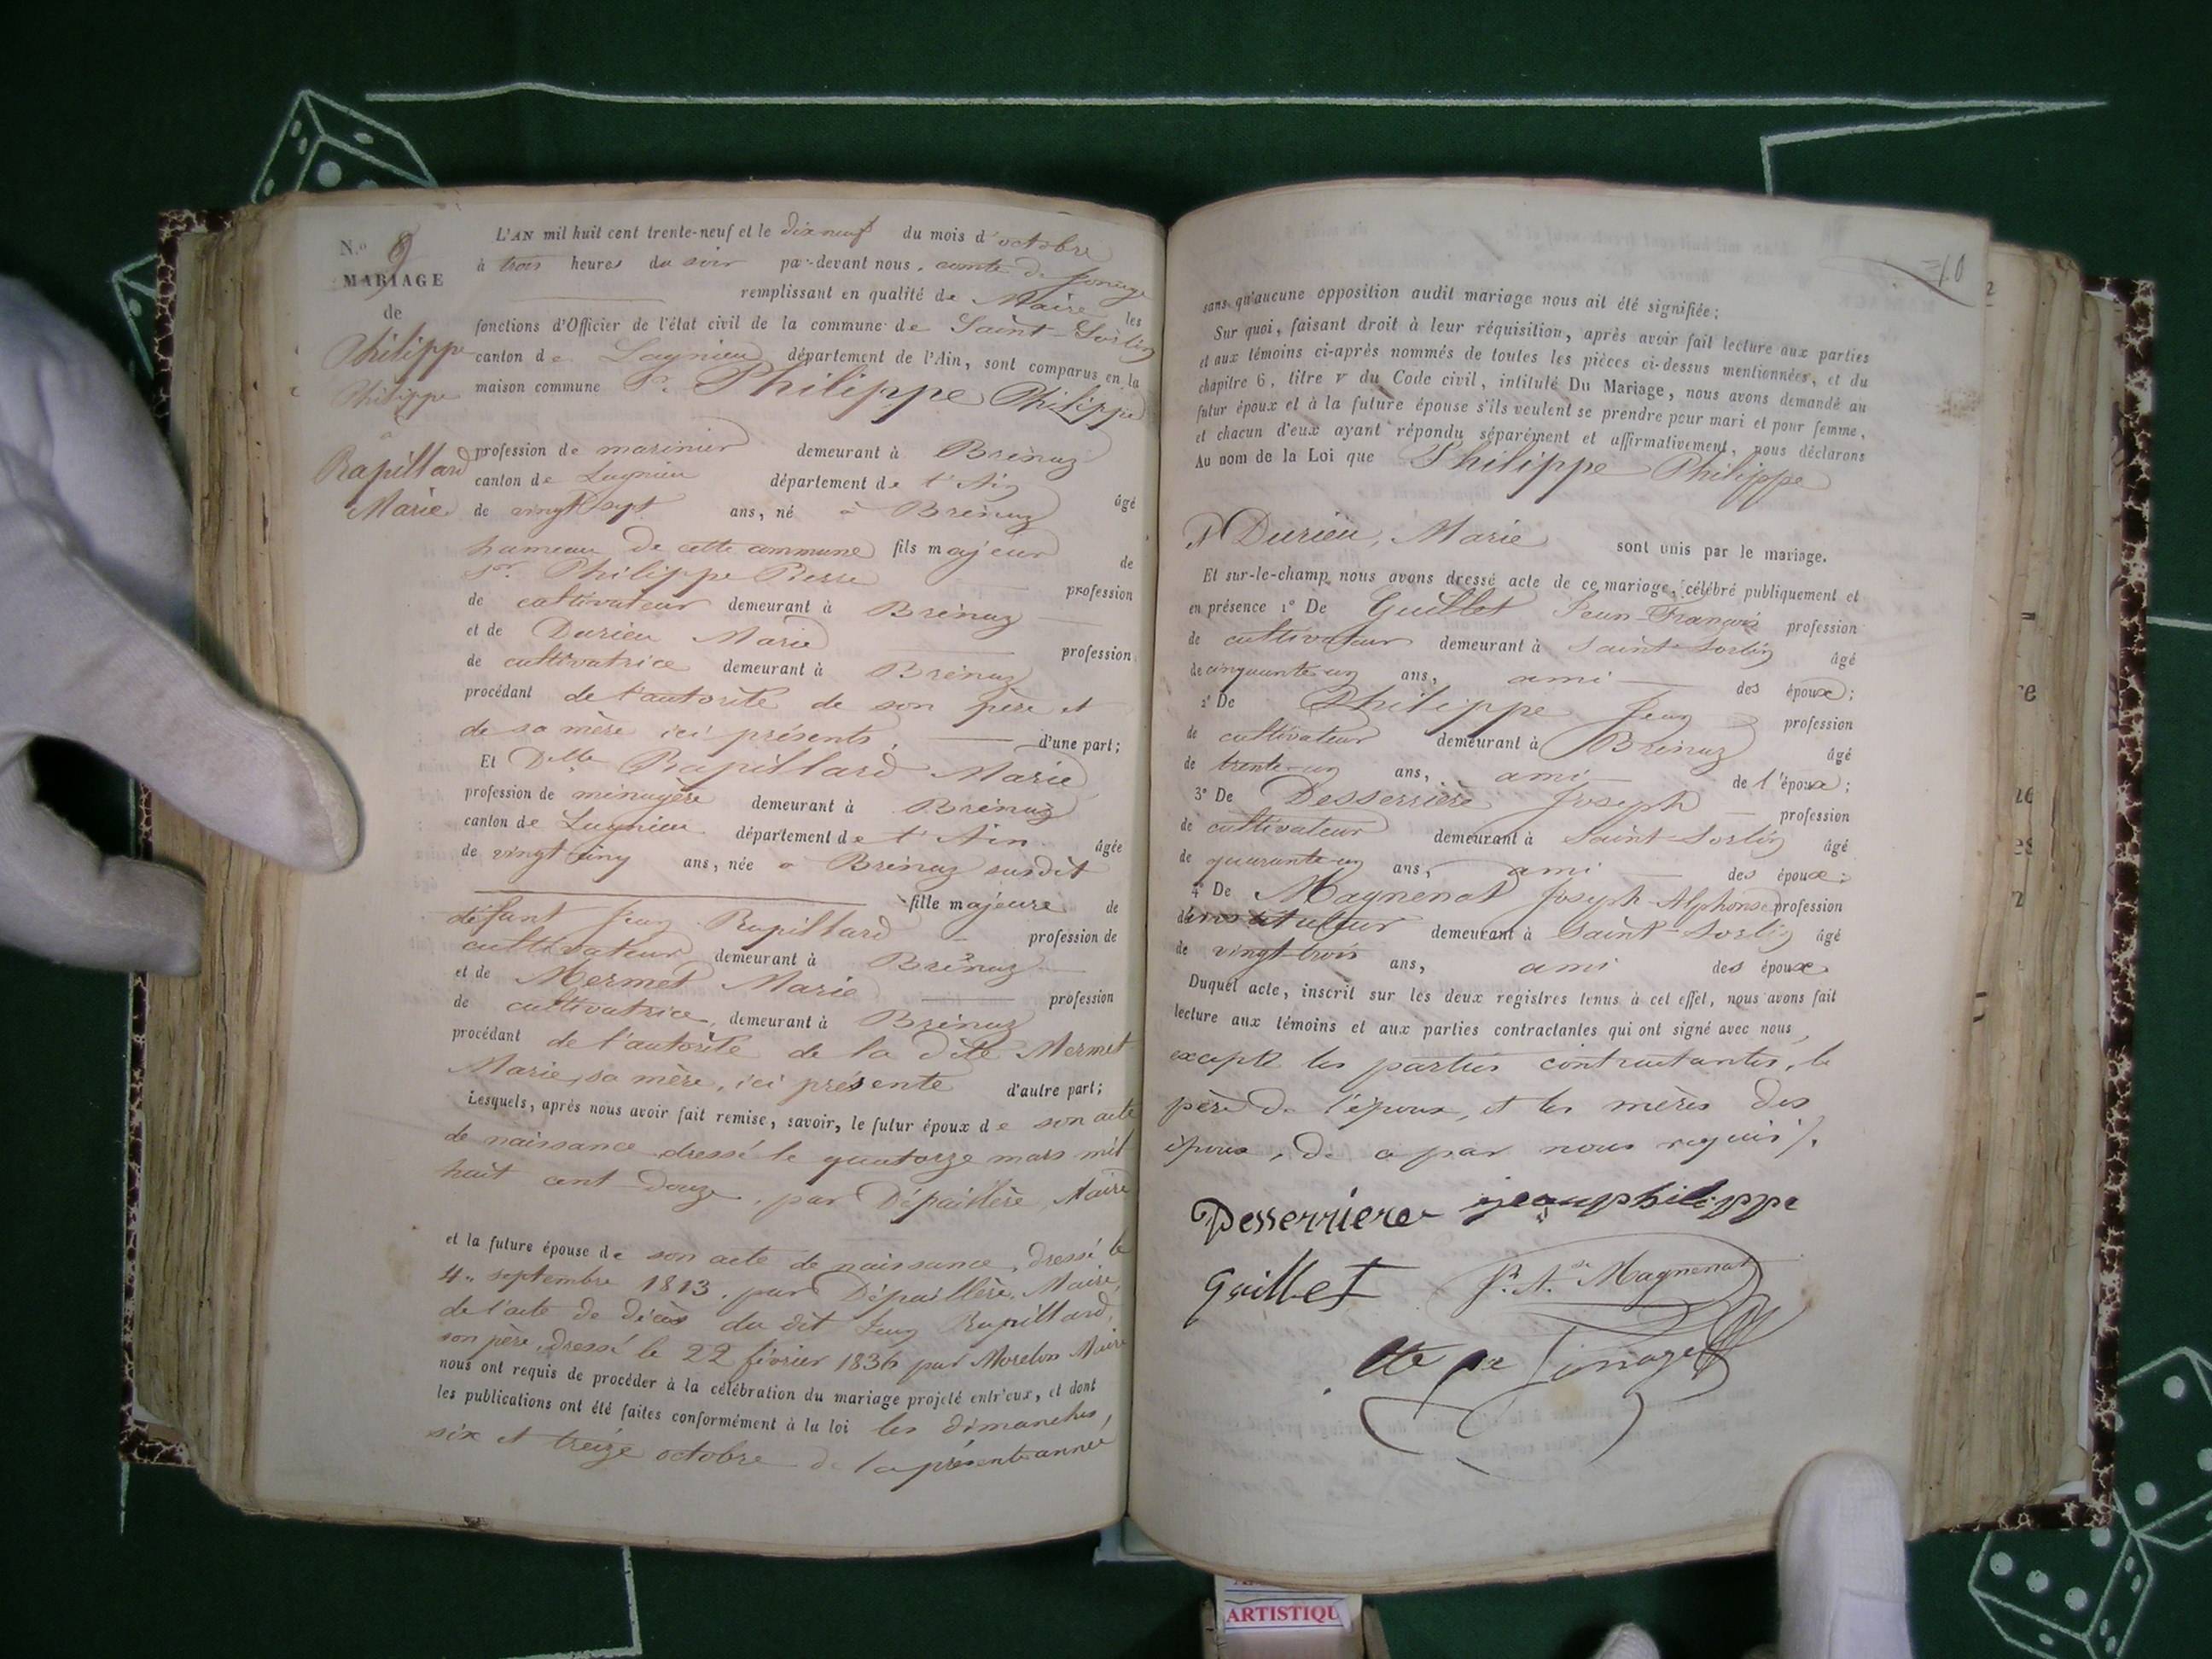 N.o 9
MARIAGE
de
Philippe
Philippe
à
Rapillard
Marie
L'AN mil huit cent trente-neuf et le dix neuf du mois d'octobre
à trois heures du soir par-devant nous, comte de Jonage
remplissant en qualité de Maire les
fonctions d'Officier de l'état civil de la commune de Saint-Sorlin
canton de Lagnieu département de l'Ain, sont comparus en la
maison commune Sr. Philippe Philippe
profession de marinier demeurant à Brénaz
canton de Lagnieu département de l'Ain
âgé
de vingt sept ans, né à Brénaz
hameau de cette commune fils majeur de
sr. Philippe Pierre profession
de cultivateur demeurant à Brénaz
et de Durieu Marie profession
de cultivatrice demeurant à Brénaz
procédant de l'autorité de son père et
de sa mère ici présents, d'une part;
Et Delle Rapillard Marie
profession de ménagère demeurant à Brénaz
canton de Lagnieu département de l'Ain âgée
de vingt cinq ans, née à Brénaz susdit
fille majeure de
défunt Jean Rapillard profession de
cultivateur demeurant à Brénaz
et de Mermet Marie profession
de cultivatrice, demeurant à Brénaz
procédant de l'autorité de la dite Mermet
Marie, sa mère, ici présente d'autre part;
Lesquels, après nous avoir fait remise, savoir, le futur époux de son acte
de naissance dressé le quatorze mars mil
huit cent douze, par Dépaillère, Maire
et la future épouse de son acte de naissance, dressé le
4 septembre 1813, par Dépaillère, Maire,
de l'acte de décès du dit Jean Rapillard,
son père, dressé le 22 février 1836 par Morelon Maire
nous ont requis de procéder à la célébration du mariage projeté entr'eux, et dont
les publications ont été faites conformément à la loi les dimanches,
six et treize octobre de la présente année
10
sans qu'aucune opposition audit mariage nous ait été signifiée;
Sur quoi, faisant droit à leur réquisition, après avoir fait lecture aux parties
et aux témoins ci-après nommés de toutes les pièces ci-dessus mentionnées, et du
chapitre 6, titre v du Code civil, intitulé Du Mariage, nous avons demandé au
futur époux et à la future épouse s'ils veulent se prendre pour mari et pour femme,
et chacun d'eux ayant répondu séparément et affirmativement, nous déclarons
Au nom de la Loi que Philippe Philippe
et Durieu, Marie sont unis par le mariage.
Et sur-le-champ nous avons dressé acte de ce mariage, célébré publiquement et
en présence 1° De Guillot Jean-François profession
de cultivateur demeurant à Saint-Sorlin âgé
de cinquante un ans, ami des époux;
2° De Philippe Jean profession
de cultivateur demeurant à Brénaz âgé
de trente-un ans, ami de l'époux;
3° De Desserrière Joseph profession
de cultivateur demeurant à Saint-Sorlin âgé
de quarante un ans, ami des époux;
4° De Magnenat Joseph-Alphonse profession
d'instituteur demeurant à Saint-Sorlin âgé
de vingt-trois ans, ami des époux
Duquel acte, inscrit sur les deux registres tenus à cet effet, nous avons fait
lecture aux témoins et aux parties contractantes qui ont signé avec nous,
excepté les parties contractantes, le
père de l'époux, et les mères des
époux, de ce par nous requis.
Desserriere jeanphilippe
Guillet J. A. Magnenat
Cte de Jonage
ARTISTIQU